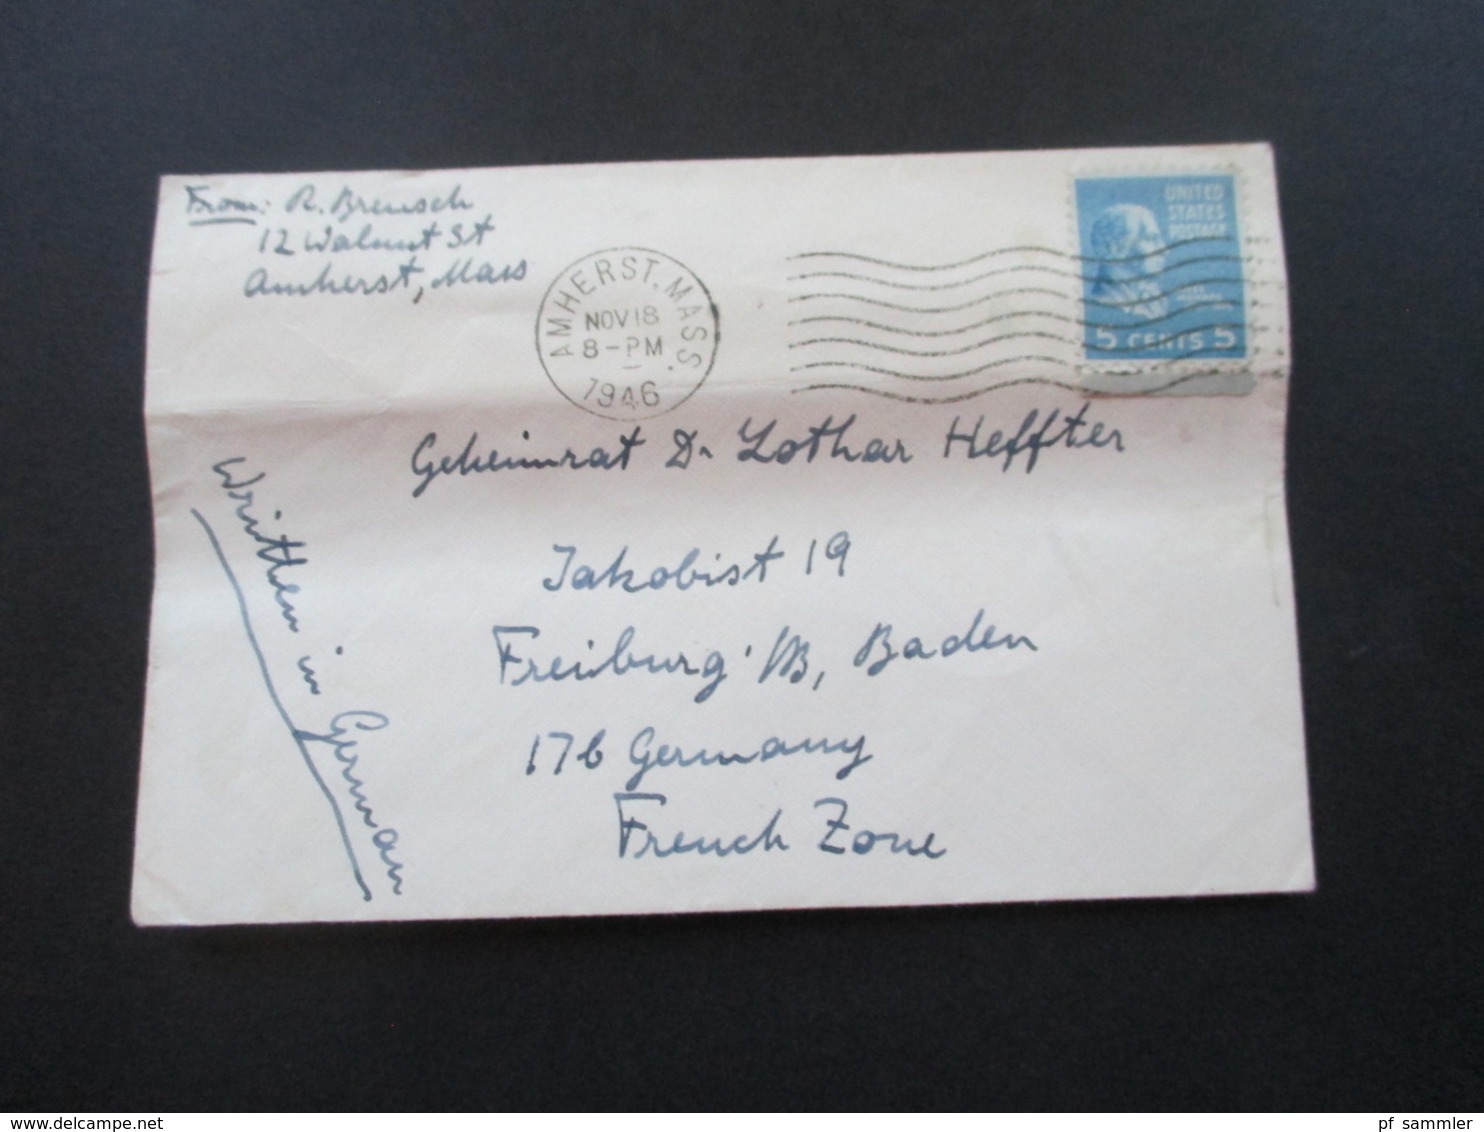 From: R. Breusch
12 Walnut St
Amherst, Mass
AMHERST, MASS.
NOV 18
8-PM
1946
UNITED
STATES
POSTAGE
5 CENTS 5
Geheimrat Dr Lothar Heffter
Jakobist 19
Freiburg i/B, Baden
17b Germany
French Zone
Written in German
www.delcampe.net
pf_sammler